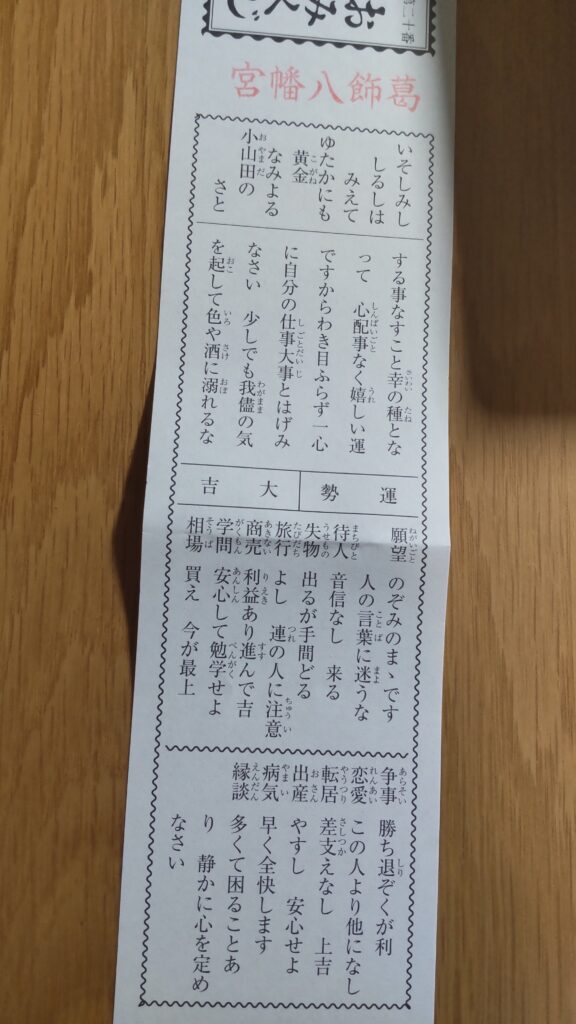 二十番
おみくじ
葛飾八幡宮
いそしみし
しるしは
みえて
ゆたかにも
黄金
なみよる
小山田の
さと
する事なすこと幸の種とな
って 心配事なく嬉しい運
ですからわき目ふらず一心
に自分の仕事大事とはげみ
なさい 少しでも我儘の気
を起して色や酒に溺れるな
運勢 大吉
願望 のぞみのまゝです
人の言葉に迷うな
待人 音信なし 来る
失物 出るが手間どる
旅行 よし 連の人に注意
商売 利益あり進んで吉
学問 安心して勉学せよ
相場 買え 今が最上
争事 勝ち退ぞくが利
恋愛 この人より他になし
転居 差支えなし 上吉
出産 やすし 安心せよ
病気 早く全快します
縁談 多くて困ることあ
り 静かに心を定め
なさい